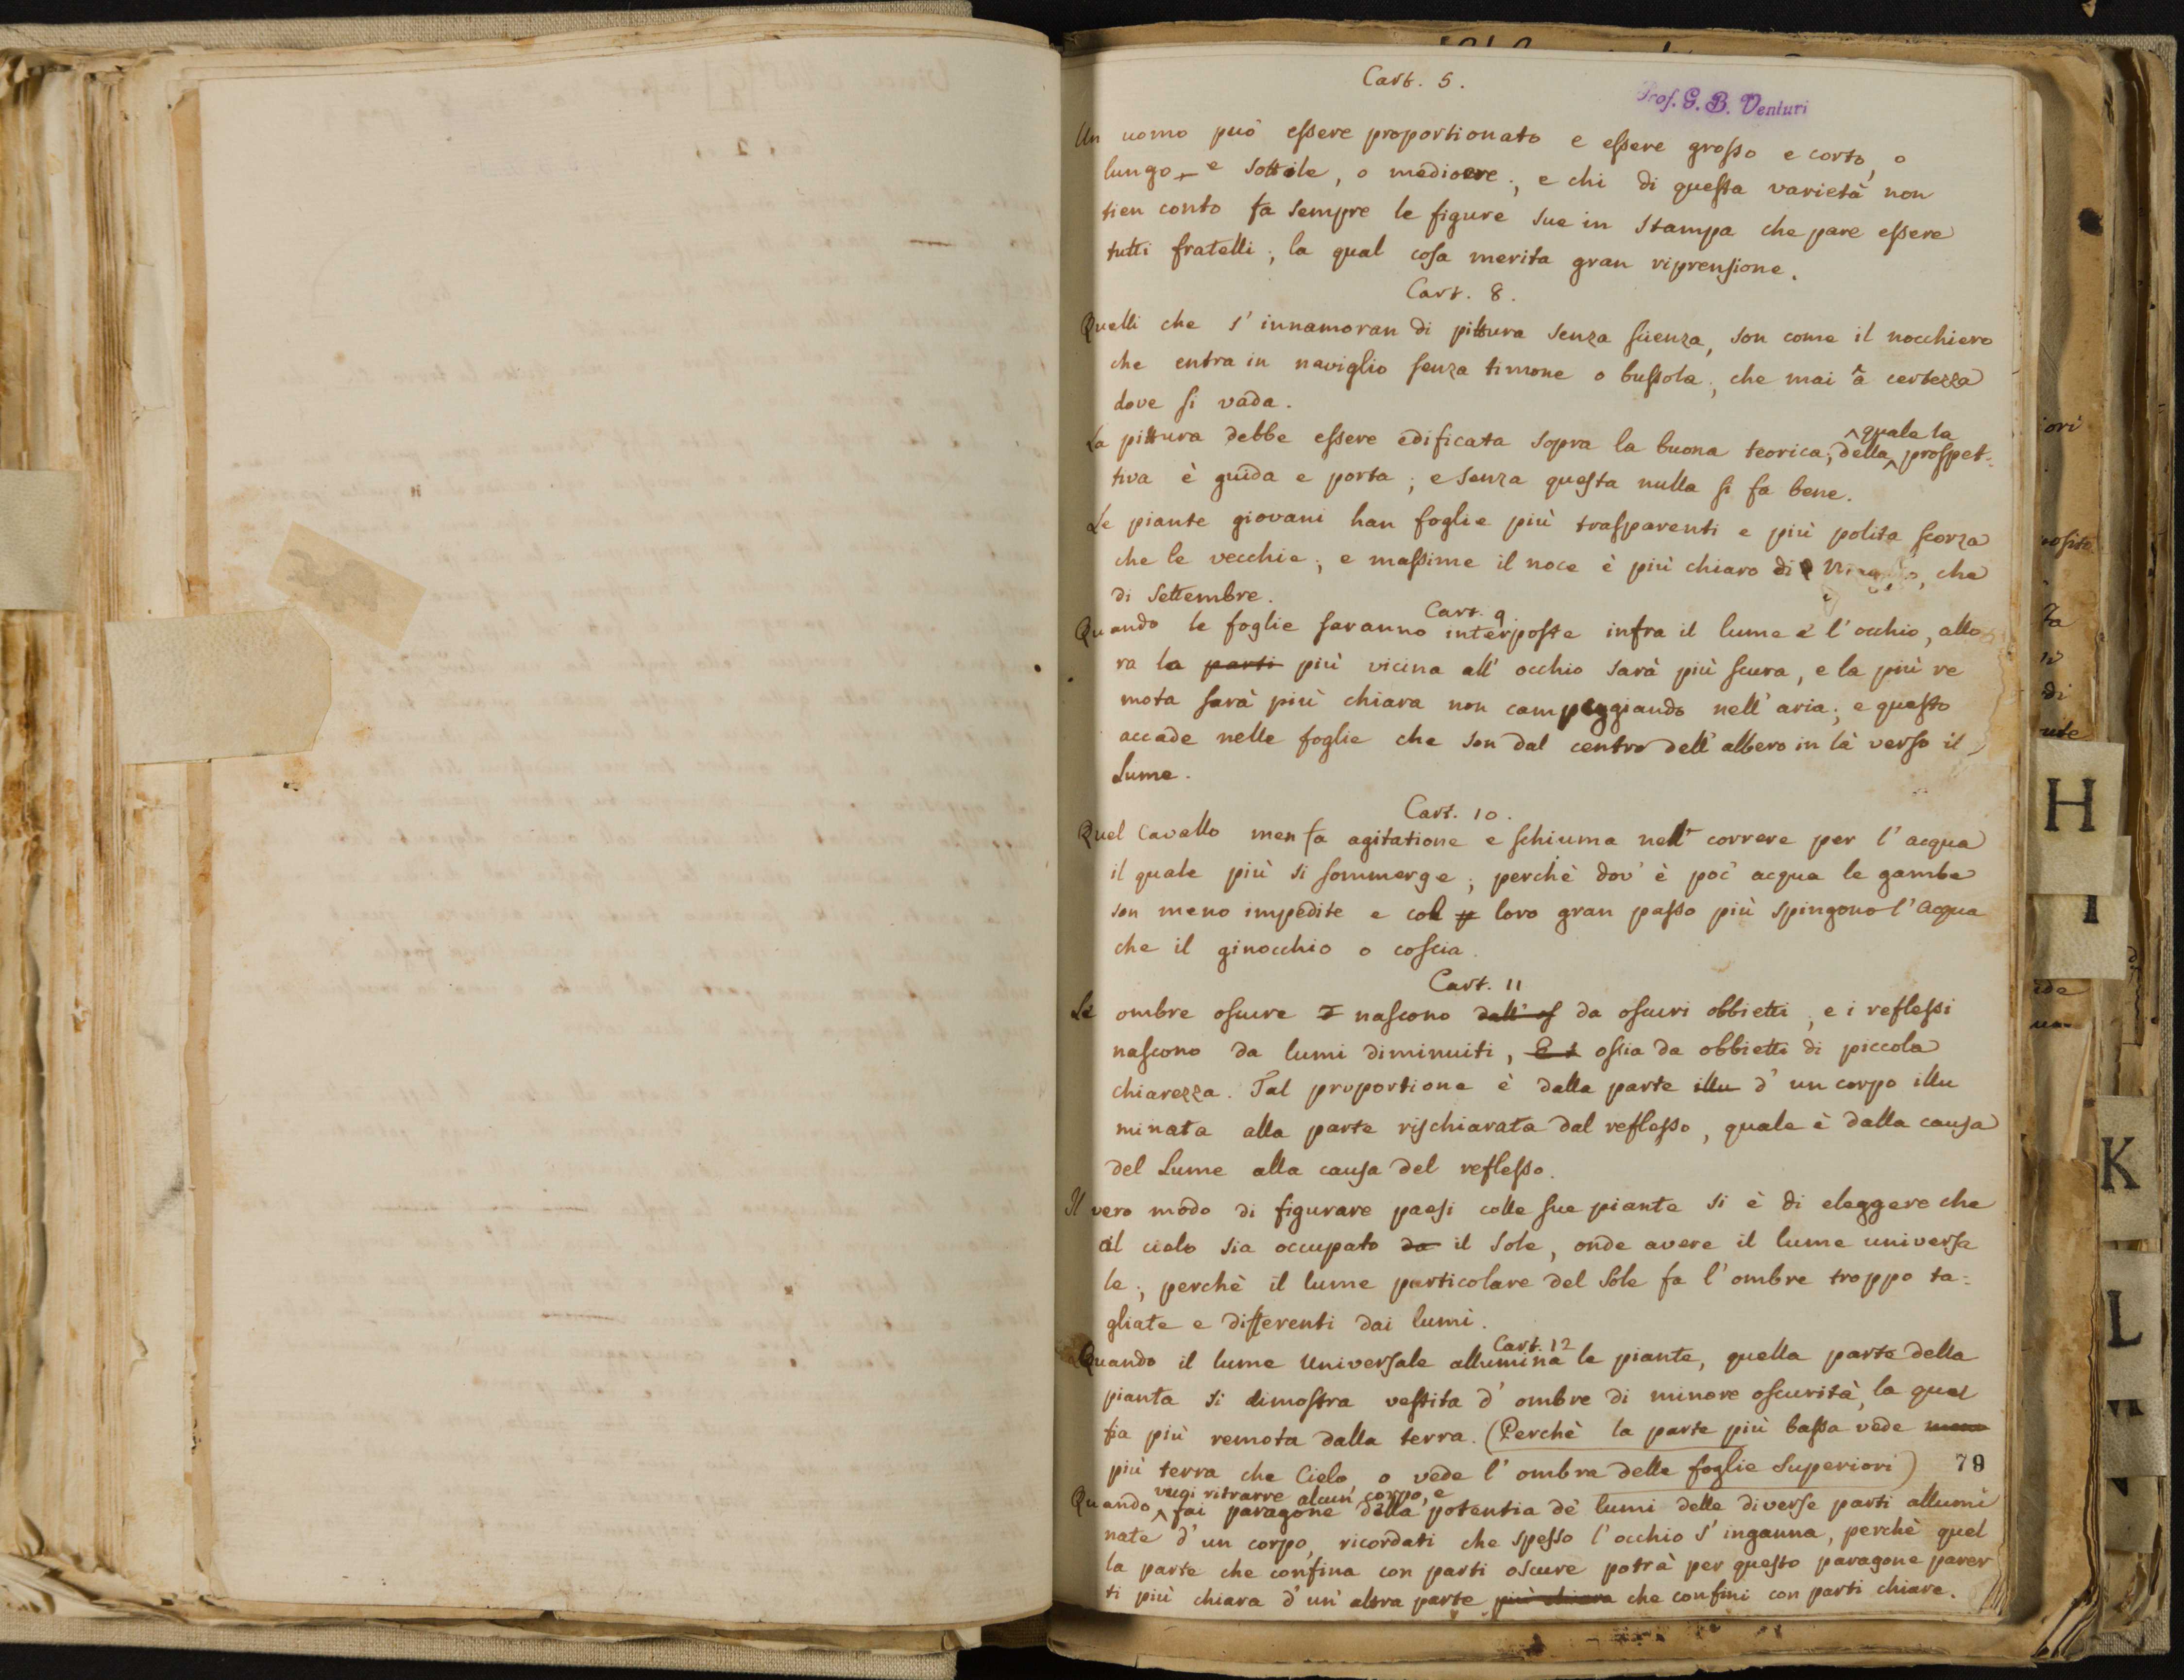 Cart. 5.
Prof. G. B. Venturi
Un uomo può essere proportionato e essere grosso e corto, o
lungo e sottile, o mediocre; e chi di questa varietà non
tien conto fa sempre le figure sue in stampa che pare essere
tutti fratelli; la qual cosa merita gran riprensione.
Cart. 8.
Quelli che s'innamoran di pittura senza scienza, son come il nocchiero
che entra in naviglio senza timone o bussola; che mai à certezza
dove si vada.
La pittura debbe essere edificata sopra la buona teorica; della quale la prospet-
tiva è guida e porta; e senza questa nulla si fa bene.
Le piante giovani han foglie più trasparenti e più polita scorza
che le vecchie; e massime il noce è più chiaro di Maggio, che
di Settembre.
Cart. 9.
Quando le foglie saranno interposte infra il lume e l'occhio, allo
ra la parti più vicina all'occhio sarà più scura, e la più re
mota sarà più chiara non campeggiando nell'aria; e questo
accade nelle foglie che son dal centro dell'albero in là verso il
Lume.
Cart. 10.
Quel Cavallo men fa agitatione e schiuma nell correre per l'acqua
il quale più si sommerge; perchè dov'è poc'acqua le gambe
son meno impedite e col loro gran passo più spingono l'acqua
che il ginocchio o coscia.
Cart. 11
Le ombre oscure nascono dall'os da oscuri obbietti, e i reflessi
nascono da lumi diminuiti, E i ossia da obbietti di piccola
chiarezza. Tal proportione è dalla parte illu d'un corpo illu
minata alla parte rischiarata dal reflesso, quale è dalla causa
del Lume alla causa del reflesso.
Il vero modo di figurare paesi colle sue piante si è di eleggere che
al cielo sia occupato da il Sole, onde avere il lume universa
le; perchè il lume particolare del Sole fa l'ombre troppo ta-
gliate e differenti dai lumi.
Cart. 12
Quando il lume Universale allumina le piante, quella parte della
pianta si dimostra vestita d'ombre di minore oscurità, la qual
fia più remota dalla terra. (Perchè la parte più bassa vede meno
più terra che Cielo, o vede l'ombra delle foglie Superiori)
79
Quando vuoi ritrarre alcun corpo, e fai paragone della potentia de' lumi delle diverse parti allumi
nate d'un corpo, ricordati che spesso l'occhio s'inganna, perchè quel
la parte che confina con parti oscure potrà per questo paragone parer
ti più chiara d'un'altra parte più chiara che confini con parti chiare.
ori
osito
ta
di
ute
H
I
K
L